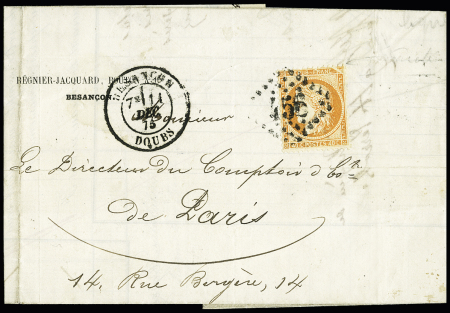 RÉGNIER-JACQUARD,
BESANÇON
BESANÇON
7E
11
DÉC.
75
DOUBS
Monsieur
Le Directeur du Comptoir d'Ete
de Paris
14, Rue Bergère, 14